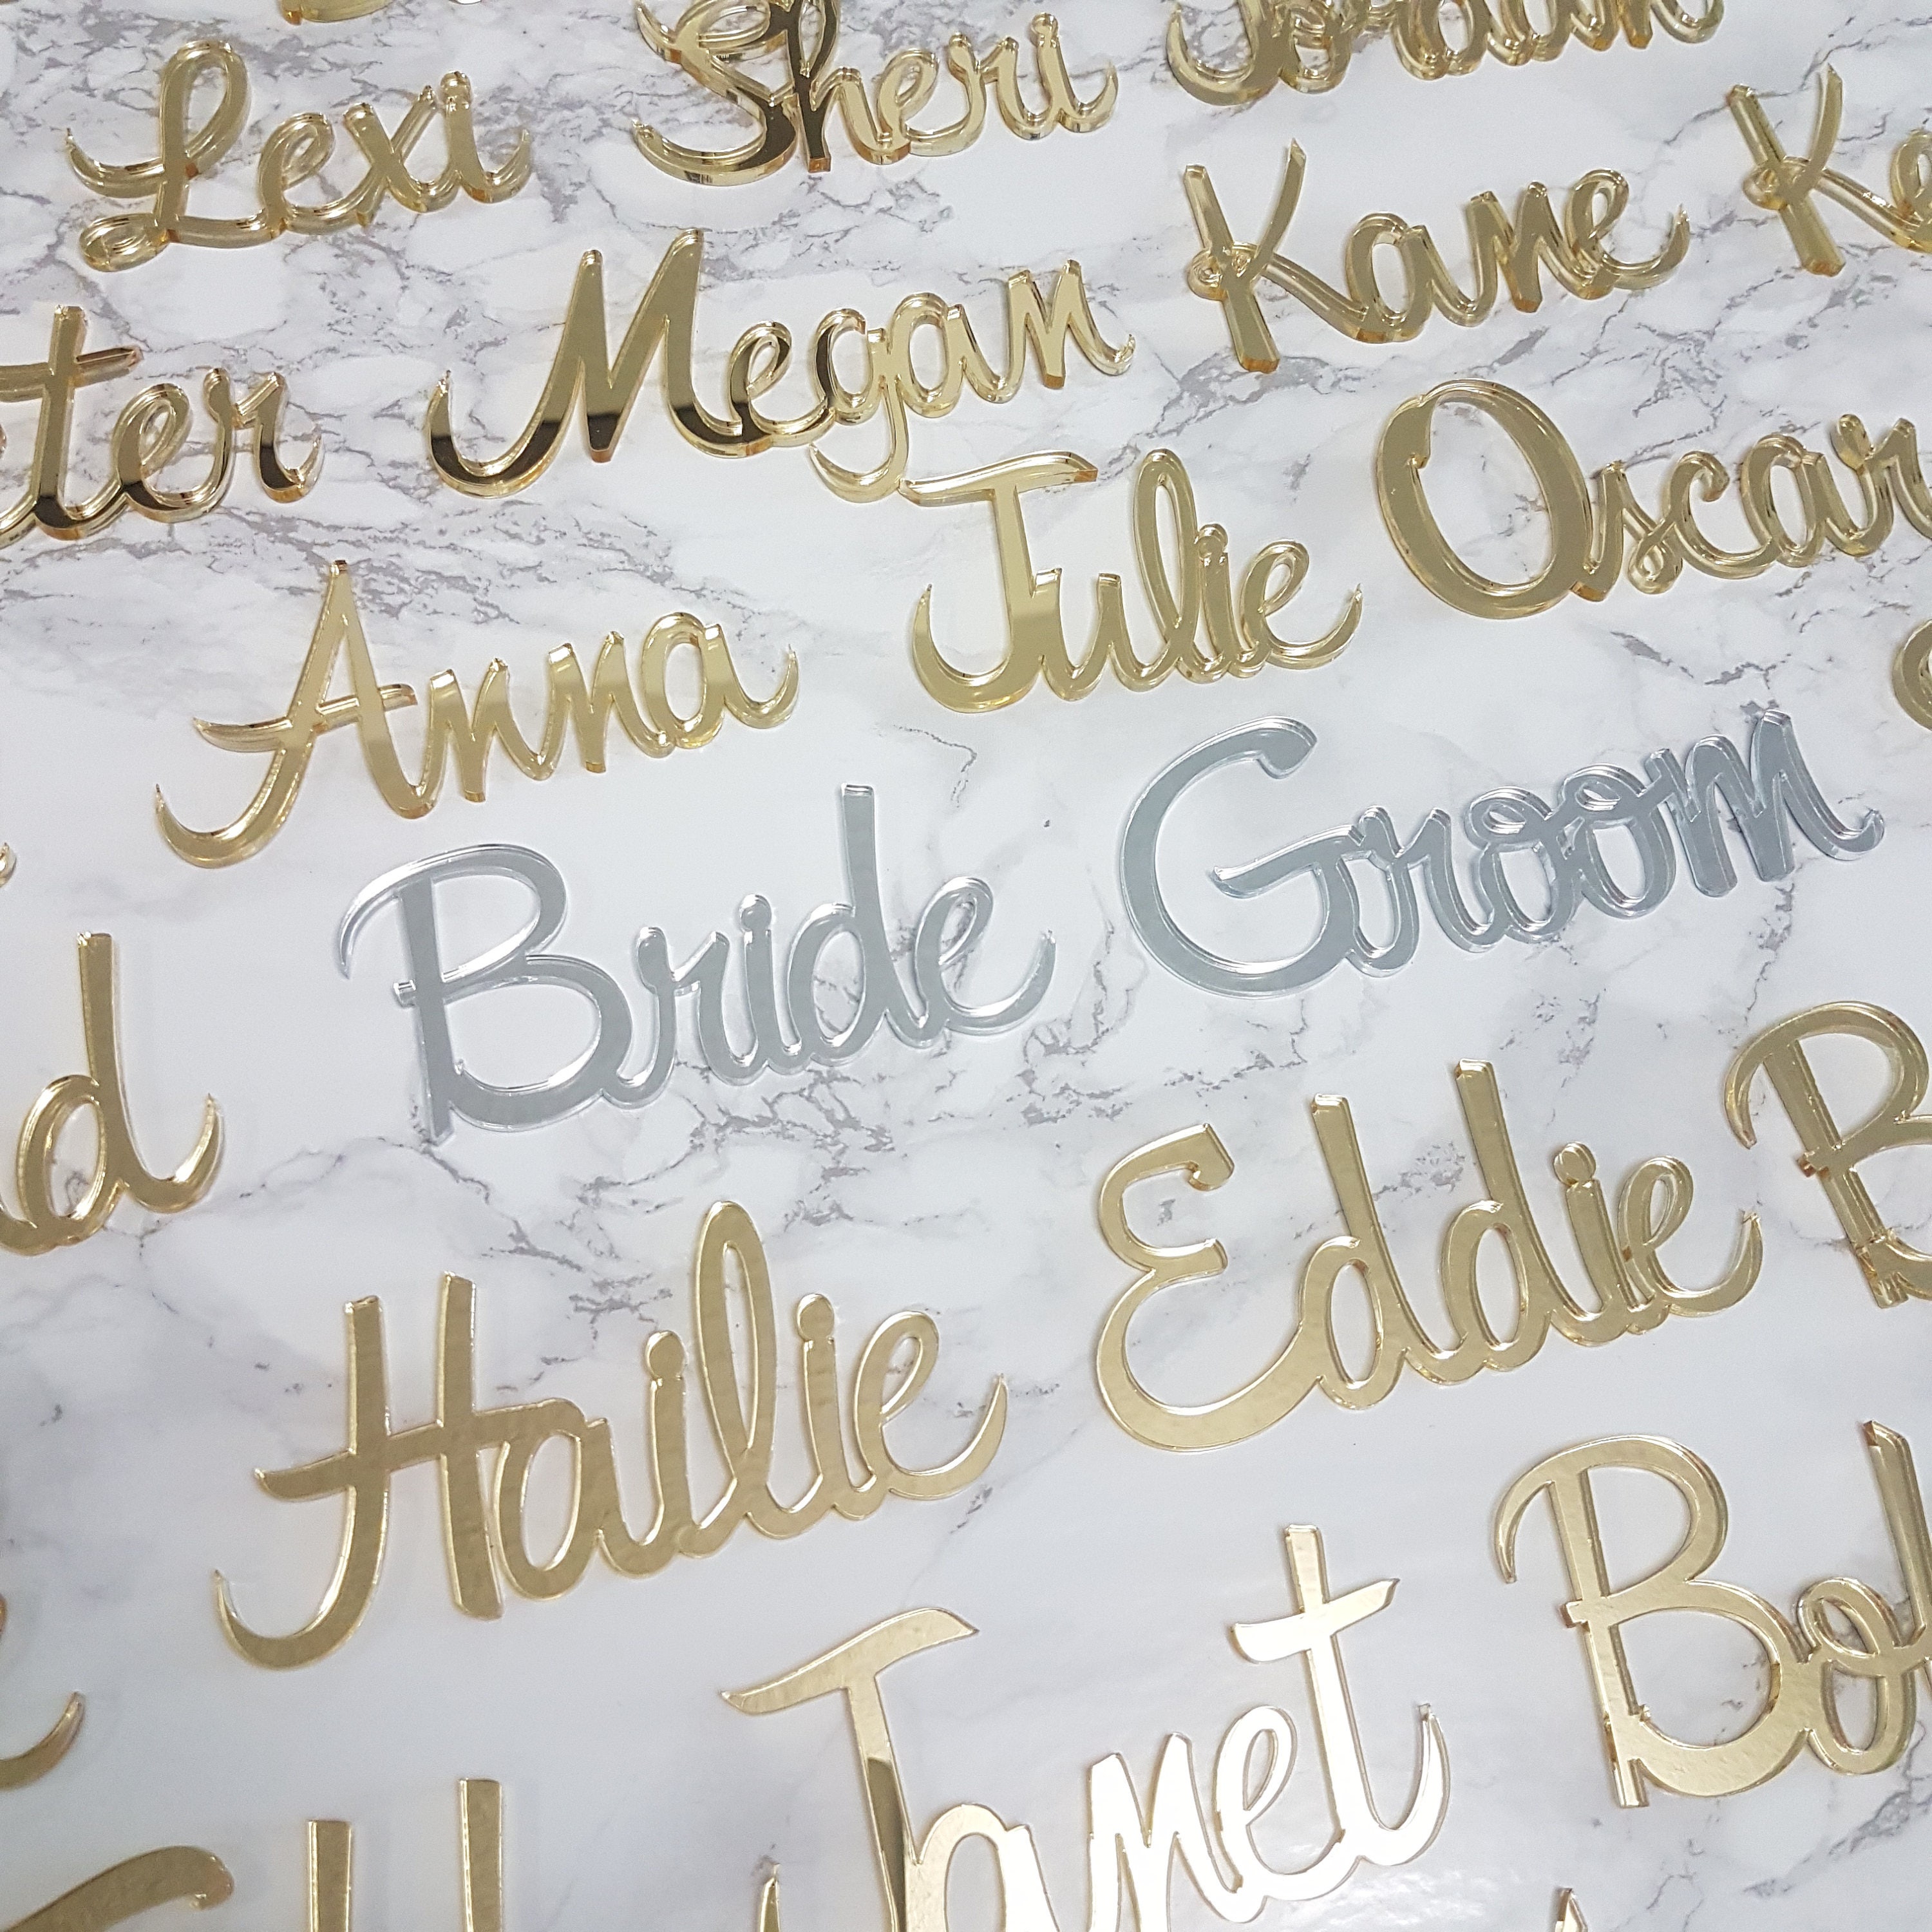 Lexi Sheri Jordan
Megan Kane
Anna Julie Oscar
Bride Groom
Hailie Eddie
Janet